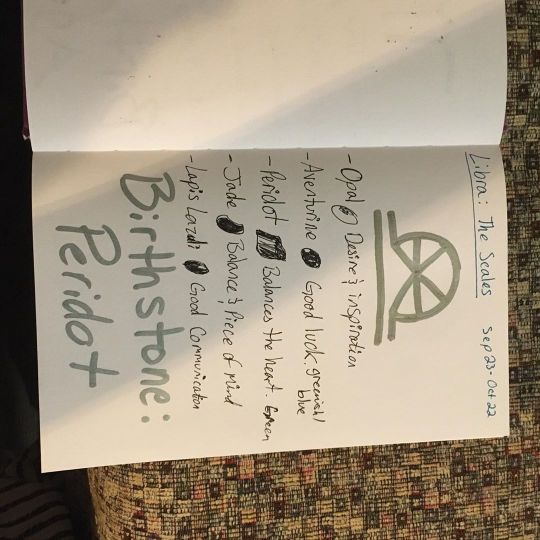 Libra: The Scales Sep 23 - Oct 22
- Opal Desire & inspiration
- Aventurine Good luck. greenish/
blue
- Peridot Balances the heart. Green
- Jade Balance & Piece of mind
- Lapis Lazuli Good Communication
Birthstone:
Peridot